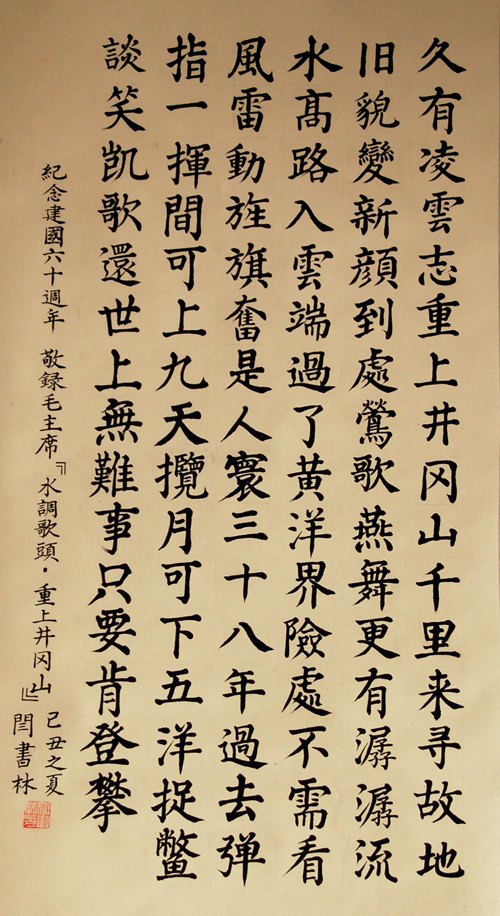 久有凌雲志重上井冈山千里来寻故地
旧貌變新顔到處鶯歌燕舞更有潺潺流
水髙路入雲端過了黄洋界險處不需看
風雷動旌旗奮是人寰三十八年過去弹
指一揮間可上九天攬月可下五洋捉鳖
談笑凯歌還世上無難事只要肯登攀
紀念建國六十週年 敬録毛主席『水調歌頭·重上井冈山』
己丑之夏
閆書林